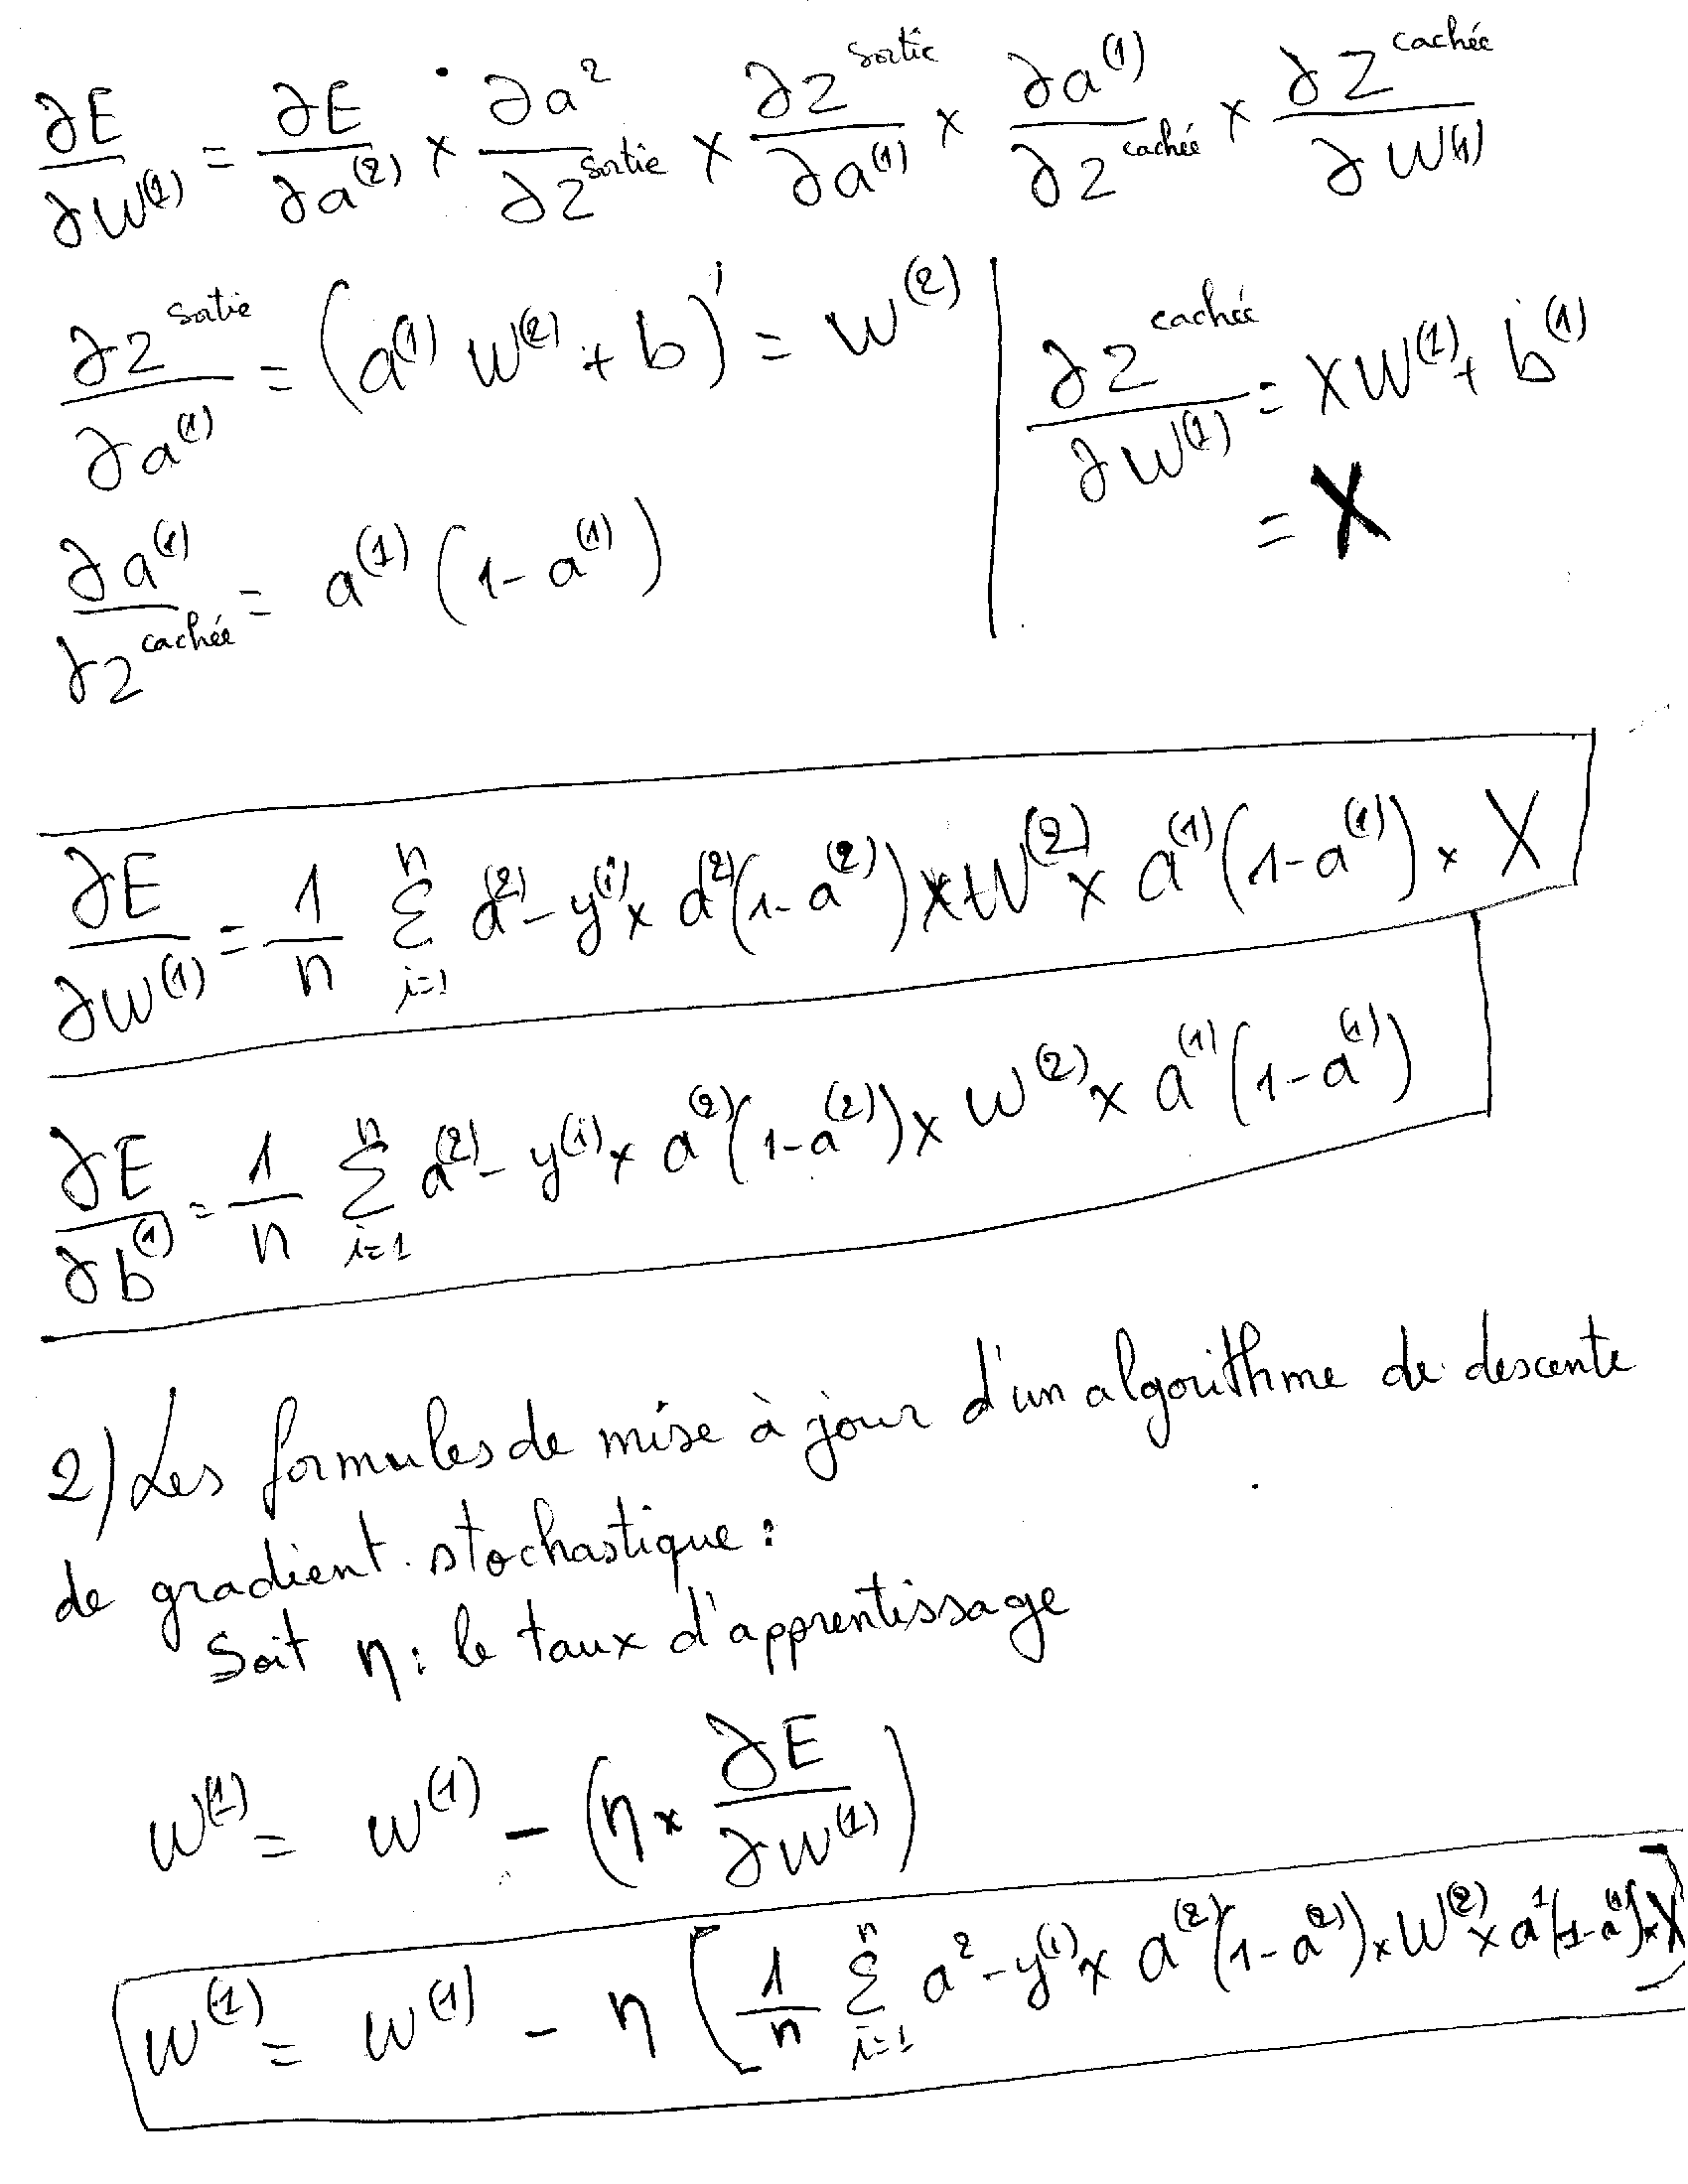 ∂E/∂W⁽¹⁾ = ∂E/∂a⁽²⁾ × ∂a²/∂Z^sortie × ∂Z^sortie/∂a⁽¹⁾ × ∂a⁽¹⁾/∂Z^cachée × ∂Z^cachée/∂W⁽¹⁾
∂Z^sortie/∂a⁽¹⁾ = (a⁽¹⁾ W⁽²⁾ + b)' = W⁽²⁾
∂a⁽¹⁾/∂Z^cachée = a⁽¹⁾ (1 - a⁽¹⁾)
∂Z^cachée/∂W⁽¹⁾ = XW⁽¹⁾ + b⁽¹⁾
= X
∂E/∂W⁽¹⁾ = 1/n Σ_{i=1}^{n} a⁽²⁾ - y⁽ⁱ⁾ × a⁽²⁾(1 - a⁽²⁾) × W⁽²⁾ × a⁽¹⁾(1 - a⁽¹⁾) × X
∂E/∂b⁽¹⁾ = 1/n Σ_{i=1}^{n} a⁽²⁾ - y⁽ⁱ⁾ × a⁽²⁾(1 - a⁽²⁾) × W⁽²⁾ × a⁽¹⁾(1 - a⁽¹⁾)
2) Les formules de mise à jour d'un algorithme de descente
de gradient stochastique :
Soit η : le taux d'apprentissage
W⁽¹⁾ = W⁽¹⁾ - (η × ∂E/∂W⁽¹⁾)
W⁽¹⁾ = W⁽¹⁾ - η [1/n Σ_{i=1}^{n} a² - y⁽ⁱ⁾ × a⁽²⁾(1 - a⁽²⁾) × W⁽²⁾ × a¹(1 - a⁽¹⁾) × X]